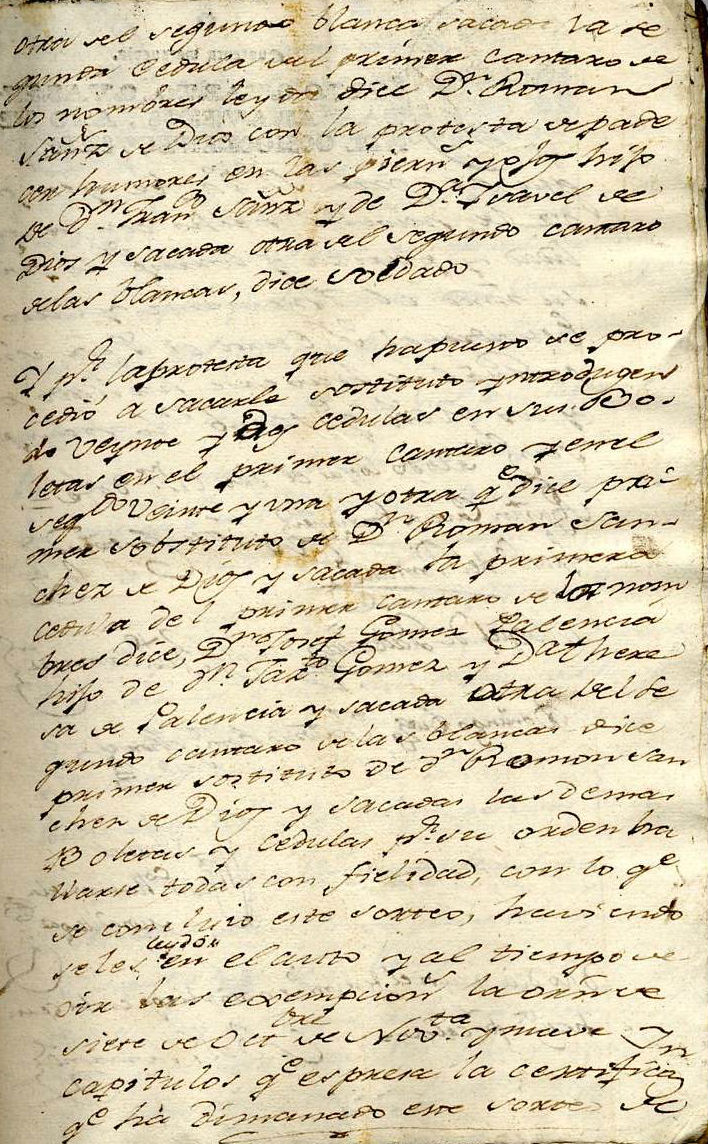 otra del segundo blanca sacada la se
gunda Cedula del primer cantaro de
los nombres leydo dice Dn. Roman
Sanz de Dios con la protesta de pade
cer humores en las piern.s y ojos hijo
de Dn. Franco Sanz y de Da. Ysavel de
Dios y sacada otra del segundo cantaro
de las blancas, dice soldado
Y pr. la protesta que ha puesto se pro-
cedió a sacarle sostituto yntroduzen
do Veynte y dos cedulas en sus Bo-
letas en el primer cantaro y en el
segdo Veinte y una y otra qe. dice pri-
mer sobstituto de Dn. Roman San-
chez de Dios y sacada la primera
cedula del primer cantaro de los nom
bres dice, Dn. Josef Gomez Palencia
hijo de Dn. Gomez y Da. there
sa de Palencia y sacada otra del se
gundo cantaro de las blancas dice
primer sostituto de dn. Romon san
chez de Dios y sacadas las demas
Boletas y Cedulas pr. su orden ha
llarse todas con fielidad, con lo qe.
se concluio este sorteo, haviendo
seles leydo en el acto y al tiempo de
oir las exempcions. la orn. de
siete de Octbre de Nov.ta y nueve y
capitulos qe. espresa la certifica
qe. ha dimanado este sorteo de